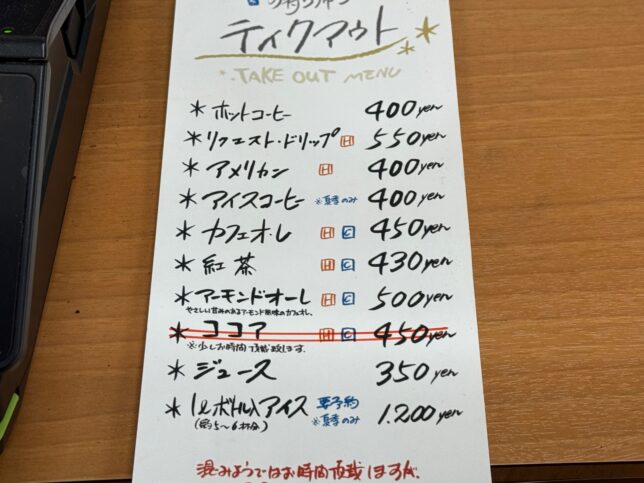 テイクアウト
*TAKE OUT MENU
*ホットコーヒー 400yen
*リクエスト・ドリップ H 550yen
*アメリカン H 400yen
*アイスコーヒー ※夏季のみ 400yen
*カフェオ・レ H C 450yen
*紅茶 H C 430yen
*アーモンドオーレ H C 500yen
やさしい甘みのあるアーモンド風味のカフェオレ。
*ココア H C 450yen
※少しお時間頂戴致します。
*ジュース 350yen
*1ℓボトル入アイス 要予約 1.200yen
(約5~6杯分) ※夏季のみ
混みようではお時間頂戴しますが、